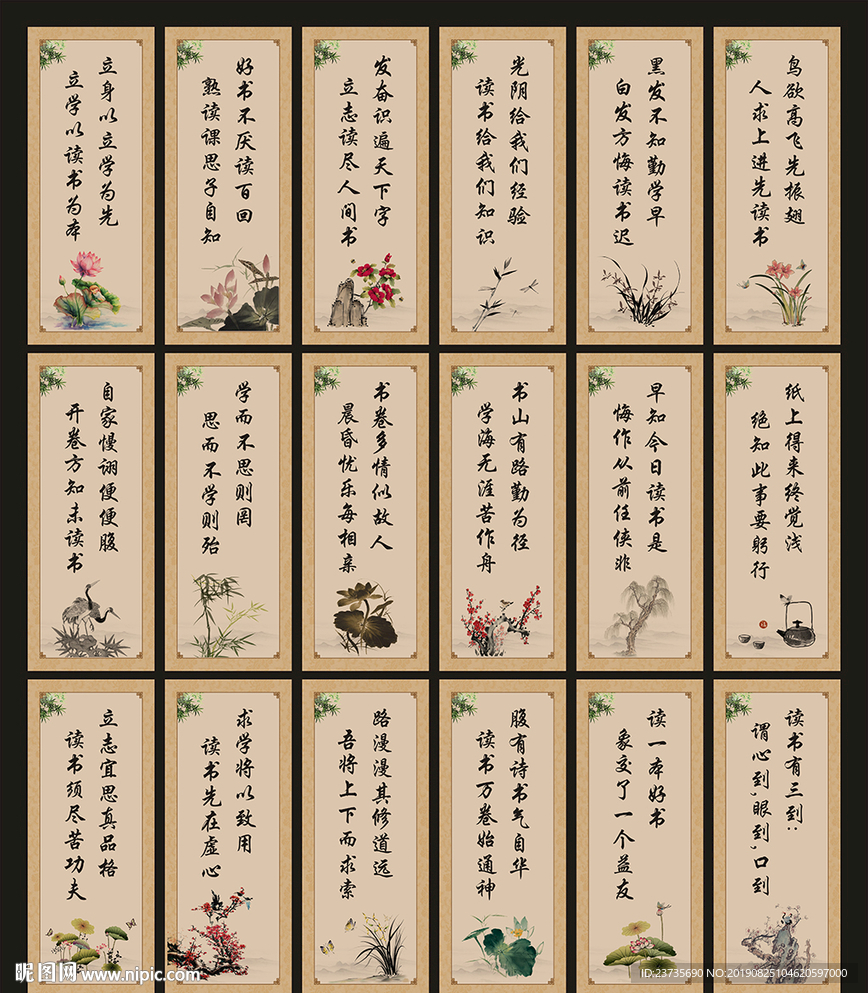 立身以立学为先
立学以读书为本
好书不厌读百回
熟读课思子自知
发奋识遍天下字
立志读尽人间书
光阴给我们经验
读书给我们知识
黑发不知勤学早
白发方悔读书迟
鸟欲高飞先振翅
人求上进先读书
自家慢诩便便腹
开卷方知未读书
学而不思则罔
思而不学则殆
书卷多情似故人
晨昏忧乐每相亲
书山有路勤为径
学海无涯苦作舟
早知今日读书是
悔作从前任侠非
纸上得来终觉浅
绝知此事要躬行
立志宜思真品格
读书须尽苦功夫
求学将以致用
读书先在虚心
路漫漫其修道远
吾将上下而求索
腹有诗书气自华
读书万卷始通神
读一本好书
象交了一个益友
读书有三到:
谓心到,眼到,口到
昵图网 www.nipic.com
ID:23735690 NO:20190825104620597000